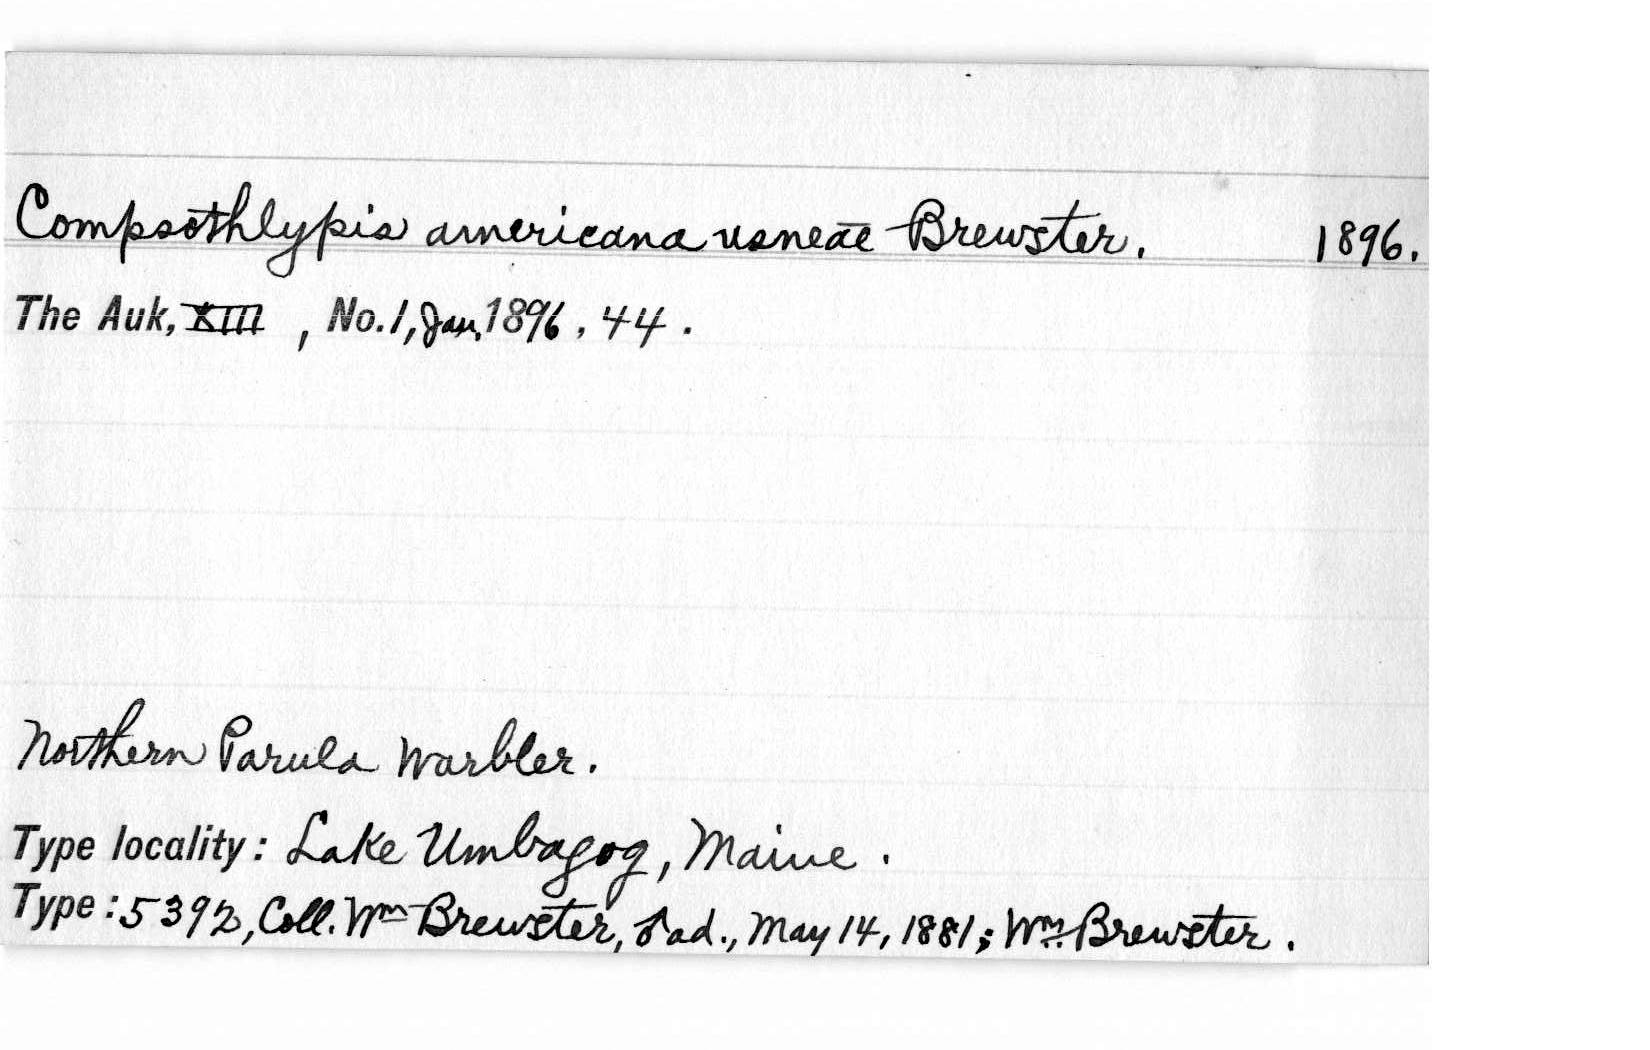 Compsothlypis americana usneae Brewster. 1896.
The Auk, XIII, No. 1, Jan. 1896, 44.
Northern Parula Warbler.
Type locality: Lake Umbagog, Maine.
Type: 5392, Coll. Wm Brewster, ♂ ad., May 14, 1881; Wm. Brewster.